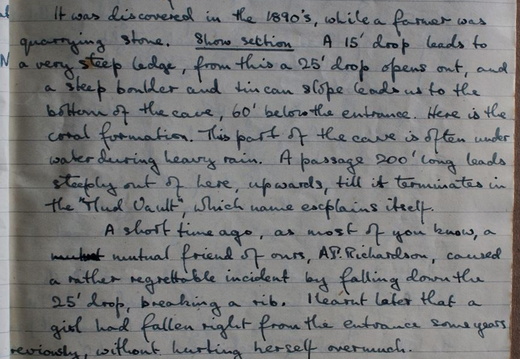 It was discovered in the 1890's, while a farmer was
quarrying stone. Show section A 15' drop leads to
a very steep ledge, from this a 25' drop opens out, and
a steep boulder and tin can slope leads us to the
bottom of the cave, 60' below the entrance. Here is the
coral formation. This part of the cave is often under
water during heavy rain. A passage 200' long leads
steeply out of here, upwards, till it terminates in
the "Mud Vault", which name explains itself.
A short time ago, as most of you know, a
mutual friend of ours, A.P. Richardson, caused
a rather regrettable incident by falling down the
25' drop, breaking a rib. I learnt later that a
girl had fallen right from the entrance some years
reviously, without hurting herself overmuch.